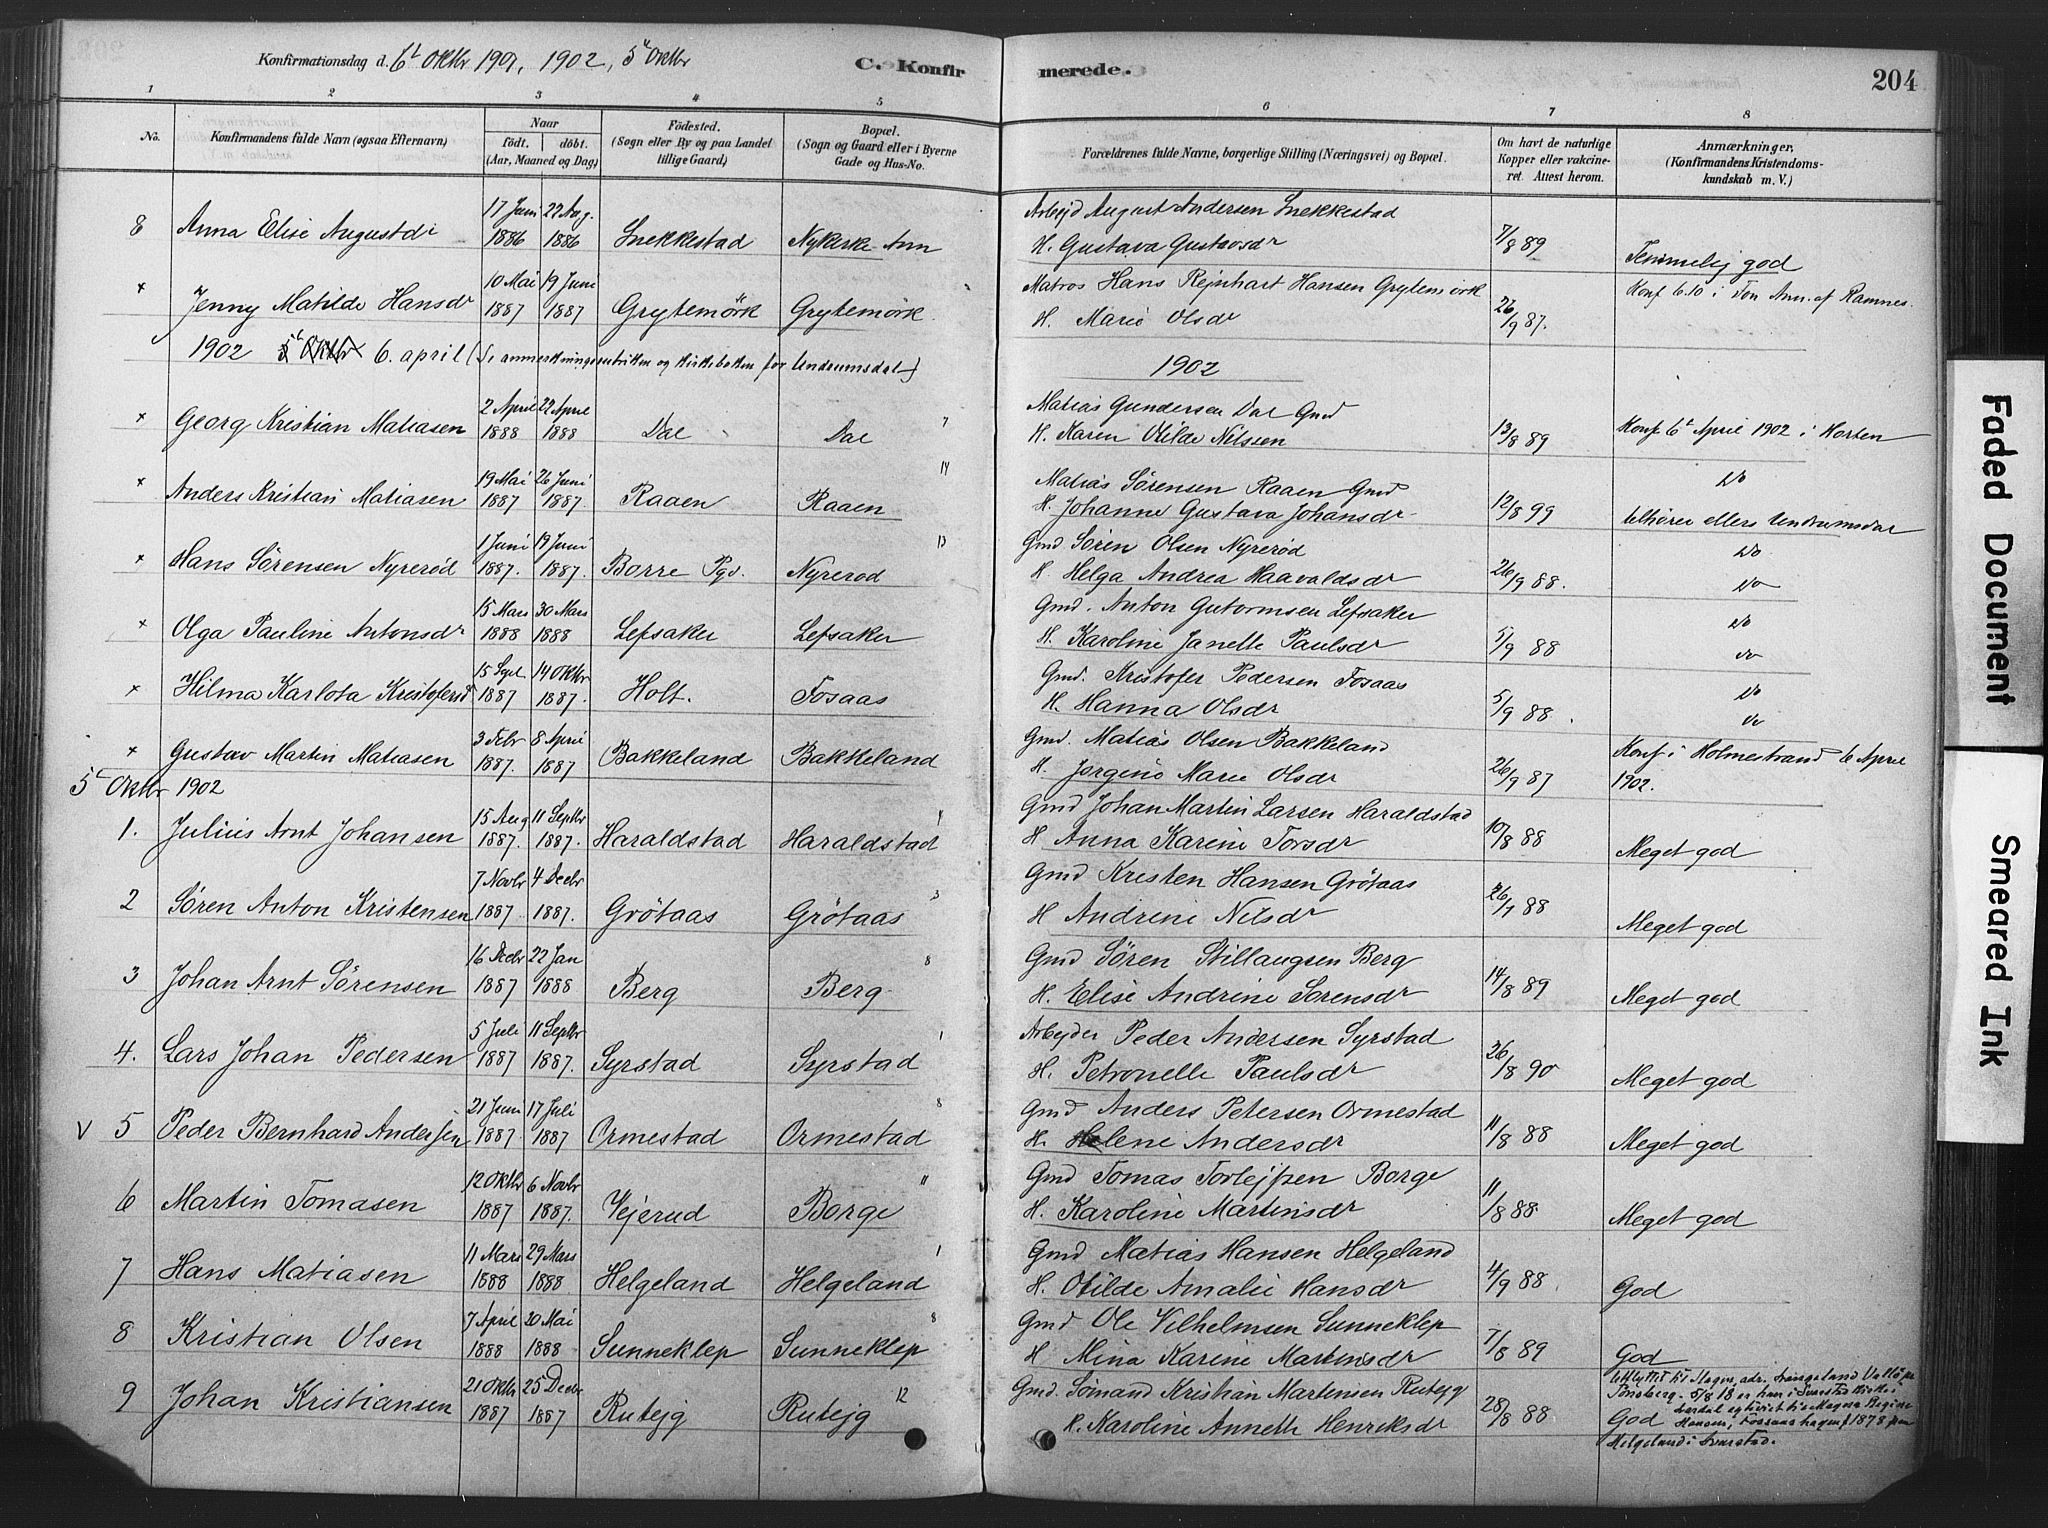 Konfirmationsdag d. 6t Oktbr 1901, 1902, 5t Oktbr
C. Konfirmerede.
204
1 2 3 4 5 6 7 8
No.
Konfirmandens fulde Navn (ogsaa Efternavn)
Naar
födt. döbt.
(Aar, Maaned og Dag)
Födested.
(Sogn eller By og paa Landet
tillige Gaard)
Bopæl.
(Sogn og Gaard eller i Byerne
Gade og Hus-No.
Forældrenes fulde Navne, borgerlige Stilling (Næringsvei) og Bopæl.
Om havt de naturlige
Kopper eller vakcine-
ret. Attest herom.
Anmærkninger,
(Konfirmandens Kristendoms-
kundskab m. V.)
17 Juni 22 Aug. Arbejd August Andersen Snekkestad
8 Anna Elise Augustdr 1886 1886 Snekkestad Nykirke Ann H. Gustava Gustavsdr 7/8 89 Temmelig god
10 Mai 19 Juni Matros Hans Rejnhart Hansen Grytemörk Konf 6.10 i Fon Ann. af Ramnes.
x Jenny Matilde Hansdr 1887 1887 Grytemörk Grytemörk H. Marie Olsdr 26/9 87.
1902 5t Oktbr 6. april (S. anmerkningsrubrikken og kirkeboken for Undrumsdal) 1902
2 April 22 April Matias Gundersen Dal Gmd
x Georg Kristian Matiasen 1888 1888 Dal Dal 7 H. Karen Otilde Nilssen 13/8 89 Konf 6t April 1902 i Horten
19 Mai 26 Juni 14 Matias Sörensen Raaen Gmd Do
x Anders Kristian Matiasen 1887 1887. Raaen Raaen H. Johanne Gustava Johansdr 12/8 99 tilhörer ellers Undrumsdal
1 Juni 19 Juni 13 Gmd Sören Olsen Nyreröd Do
x Hans Sörensen Nyreröd 1887. 1887. Borre Pgd. Nyreröd H Helga Andrea Haavaldsdr 26/9 88. Do
15 Mars 30 Mars Gmd. Anton Gutormsen Lefsaker Do
x Olga Pauline Antonsdr 1888 1888 Lefsaker Lefsaker H. Karoline Janette Paulsdr 5/9 88 do
15 Sept 14 Oktbr Gmd. Kristofer Pedersen Fosaas Do
x Hilma Karlota Kristofersd 1887 1887. Holt. Fosaas H. Hanna Olsdr 5/9 88. do
3 Febr 8 April Gmd. Matias Olsen Bakkeland Konf i Holmestrand 6 April
x Gustav Martin Matiasen 1887. 1887 Bakkeland Bakkeland H. Jorgine Marie Olsdr 26/9 87 1902.
5t Oktbr 1902
15 Aug 11 Septbr 4 Gmd Johan Martin Larsen Haraldstad
1. Julius Arnt Johansen 1887. 1887. Haraldstad Haraldstad H Anna Karine Torsdr 10/8 88 Meget god
7 Novbr 4 Decbr 3 Gmd Kristen Hansen Grötaas
2 Sören Anton Kristensen 1887. 1887. Grötaas Grötaas H Andrine Nilsdr 26/7 88 Meget god
16 Decbr 22 Jan 8 Gmd Sören Stillaugsen Berg
3 Johan Arnt Sörensen 1887 1888 Berg Berg H. Elise Andrine Sorensdr 14/8 89 Meget god
5 Juli 11 Septbr 1 Arbejder Peder Andersen Syrstad
4. Lars Johan Pedersen 1887 1887. Syrstad Syrstad H. Petronelle Paulsdr 26/8 90 Meget god
21 Juni 17 Juli 8 Gmd Anders Petersen Ormestad
V 5 Peder Bernhard Andersen 1887. 1887 Ormestad Ormestad H. Helene Andersdr 11/8 88 Meget god
12 Oktbr 6 Novbr 11 Gmd Tomas Torlejfsen Borge
6 Martin Tomasen 1887 1887. Vejerud Borge H. Karoline Martinsdr 11/8 88 Meget god
11 Mars 29 Mars 1 Gmd Matias Hansen Helgeland
7 Hans Matiasen 1888 1888 Helgeland Helgeland H. Otilde Amalie Hansdr 4/9 88 God
7 April 20 Mai 8 Gmd Ole Vilhelmsen Sunneklep
8 Kristian Olsen 1888 1888 Sunneklep Sunneklep H Mina Karine Martinsdr 7/8 89 God
21 Oktbr 25 Decbr 12 Gmd. Sömand Kristian Martinsen Rutejg
9 Johan Kristiansen 1887 1887 Rutejg Rutejg H. Karoline Annette Henriksdr 28/8 88 God
Utflyttet til Slagn, adr. Vallö pr
Tönsberg. 5/8 18 er han i Svarstad kirke i
Lardal egteviet til Magna Regine
Hansen, f 1878 paa
Helgeland i Svarstad.
Faded Document
Smeared Ink